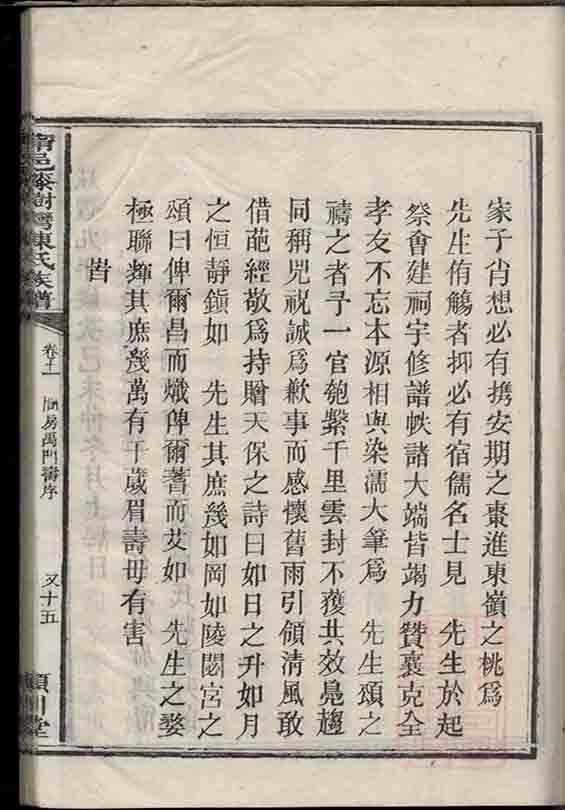 家子肖想必有携安期之棗進東嶺之桃爲
先生侑觴者抑必有宿儒名士見　先生於起
祭會建祠宇修譜帙諸大端皆竭力贊襄克全
孝友不忘本源相與染濡大筆爲　先生頌之
禱之者予一官匏繫千里雲封不獲共效鳧趨
同稱兕祝誠爲歉事而感懷舊雨引領清風敢
借葩經敬爲持贈天保之詩曰如日之升如月
之恒靜鎮如　先生其庶幾如岡如陵閟宮之
頌曰俾爾昌而熾俾爾耆而艾如　先生之婺
極聯輝其庶幾萬有千歲眉壽毋有害
旹
甯邑檪樹灣陳氏族譜
卷十一
房萬門壽序
又十五
潁川堂